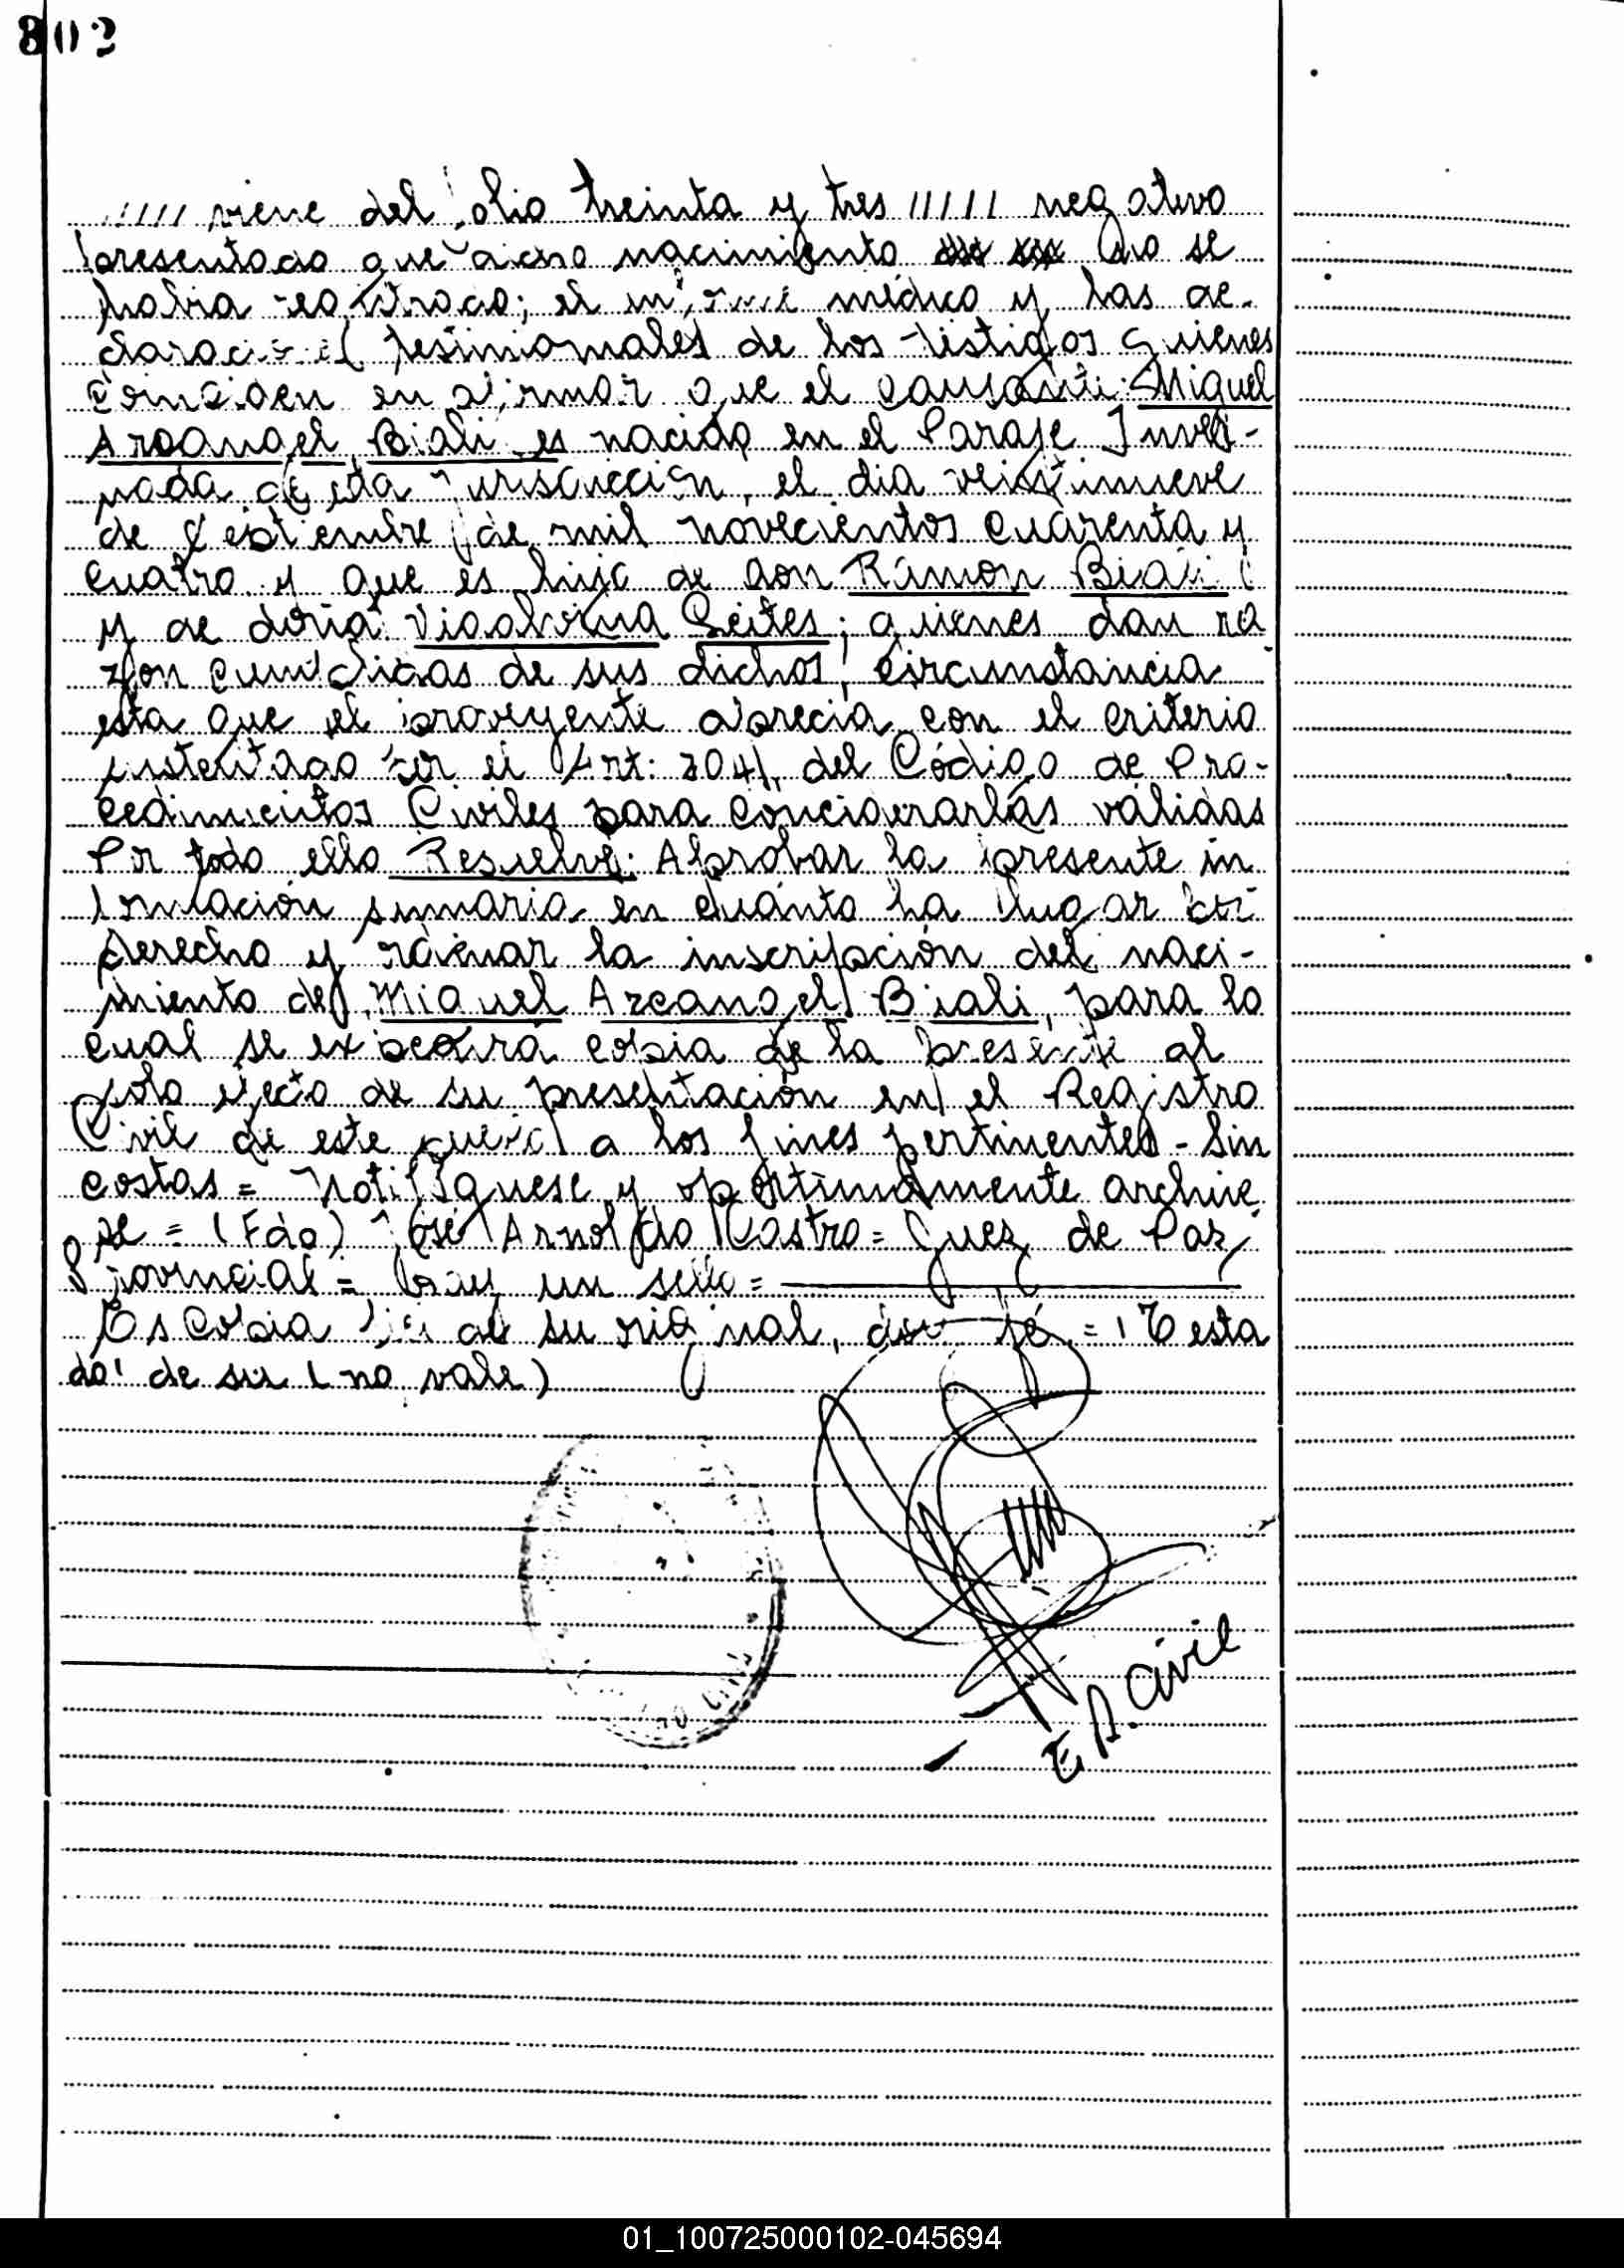 802
///// viene del folio treinta y tres ///// negativo
presentado que dicho nacimiento no se
habia registrado; el informe médico y las de-
claraciones testimoniales de los testigos quienes
coinciden en afirmar que el causante: Miguel
Arcangel Biali es nacido en el Paraje Inver-
nada de esta jurisdicción, el dia veintinueve
de septiembre de mil novecientos cuarenta y
cuatro y que es hijo de don Ramon Biali
y de doña Leites; quienes dan ra
zon de sus dichos, circunstancia
esta que el proveyente aprecia con el criterio
sustentado por el Art: 204, del Código de Pro-
cedimientos Civiles para conciderarlas válidas
Por todo ello Resuelvo: Aprobar la presente in
formación sumaria en cuánto ha lugar por
derecho y ordenar la inscripción del naci-
miento de, Miguel Arcangel Biali, para lo
cual se expedirá copia de la presente al
solo efecto de su presentación en el Registro
Civil de este a los fines pertinentes - Sin
costas = Notifíquese y oportunamente archive
se = (Fdo) José Arnoldo Castro = Juez de Paz
Provincial = hay un sello =
Es Copia fiel de su original, doy fé = Testa
do: de su (no vale)
Civil
01_100725000102-045694